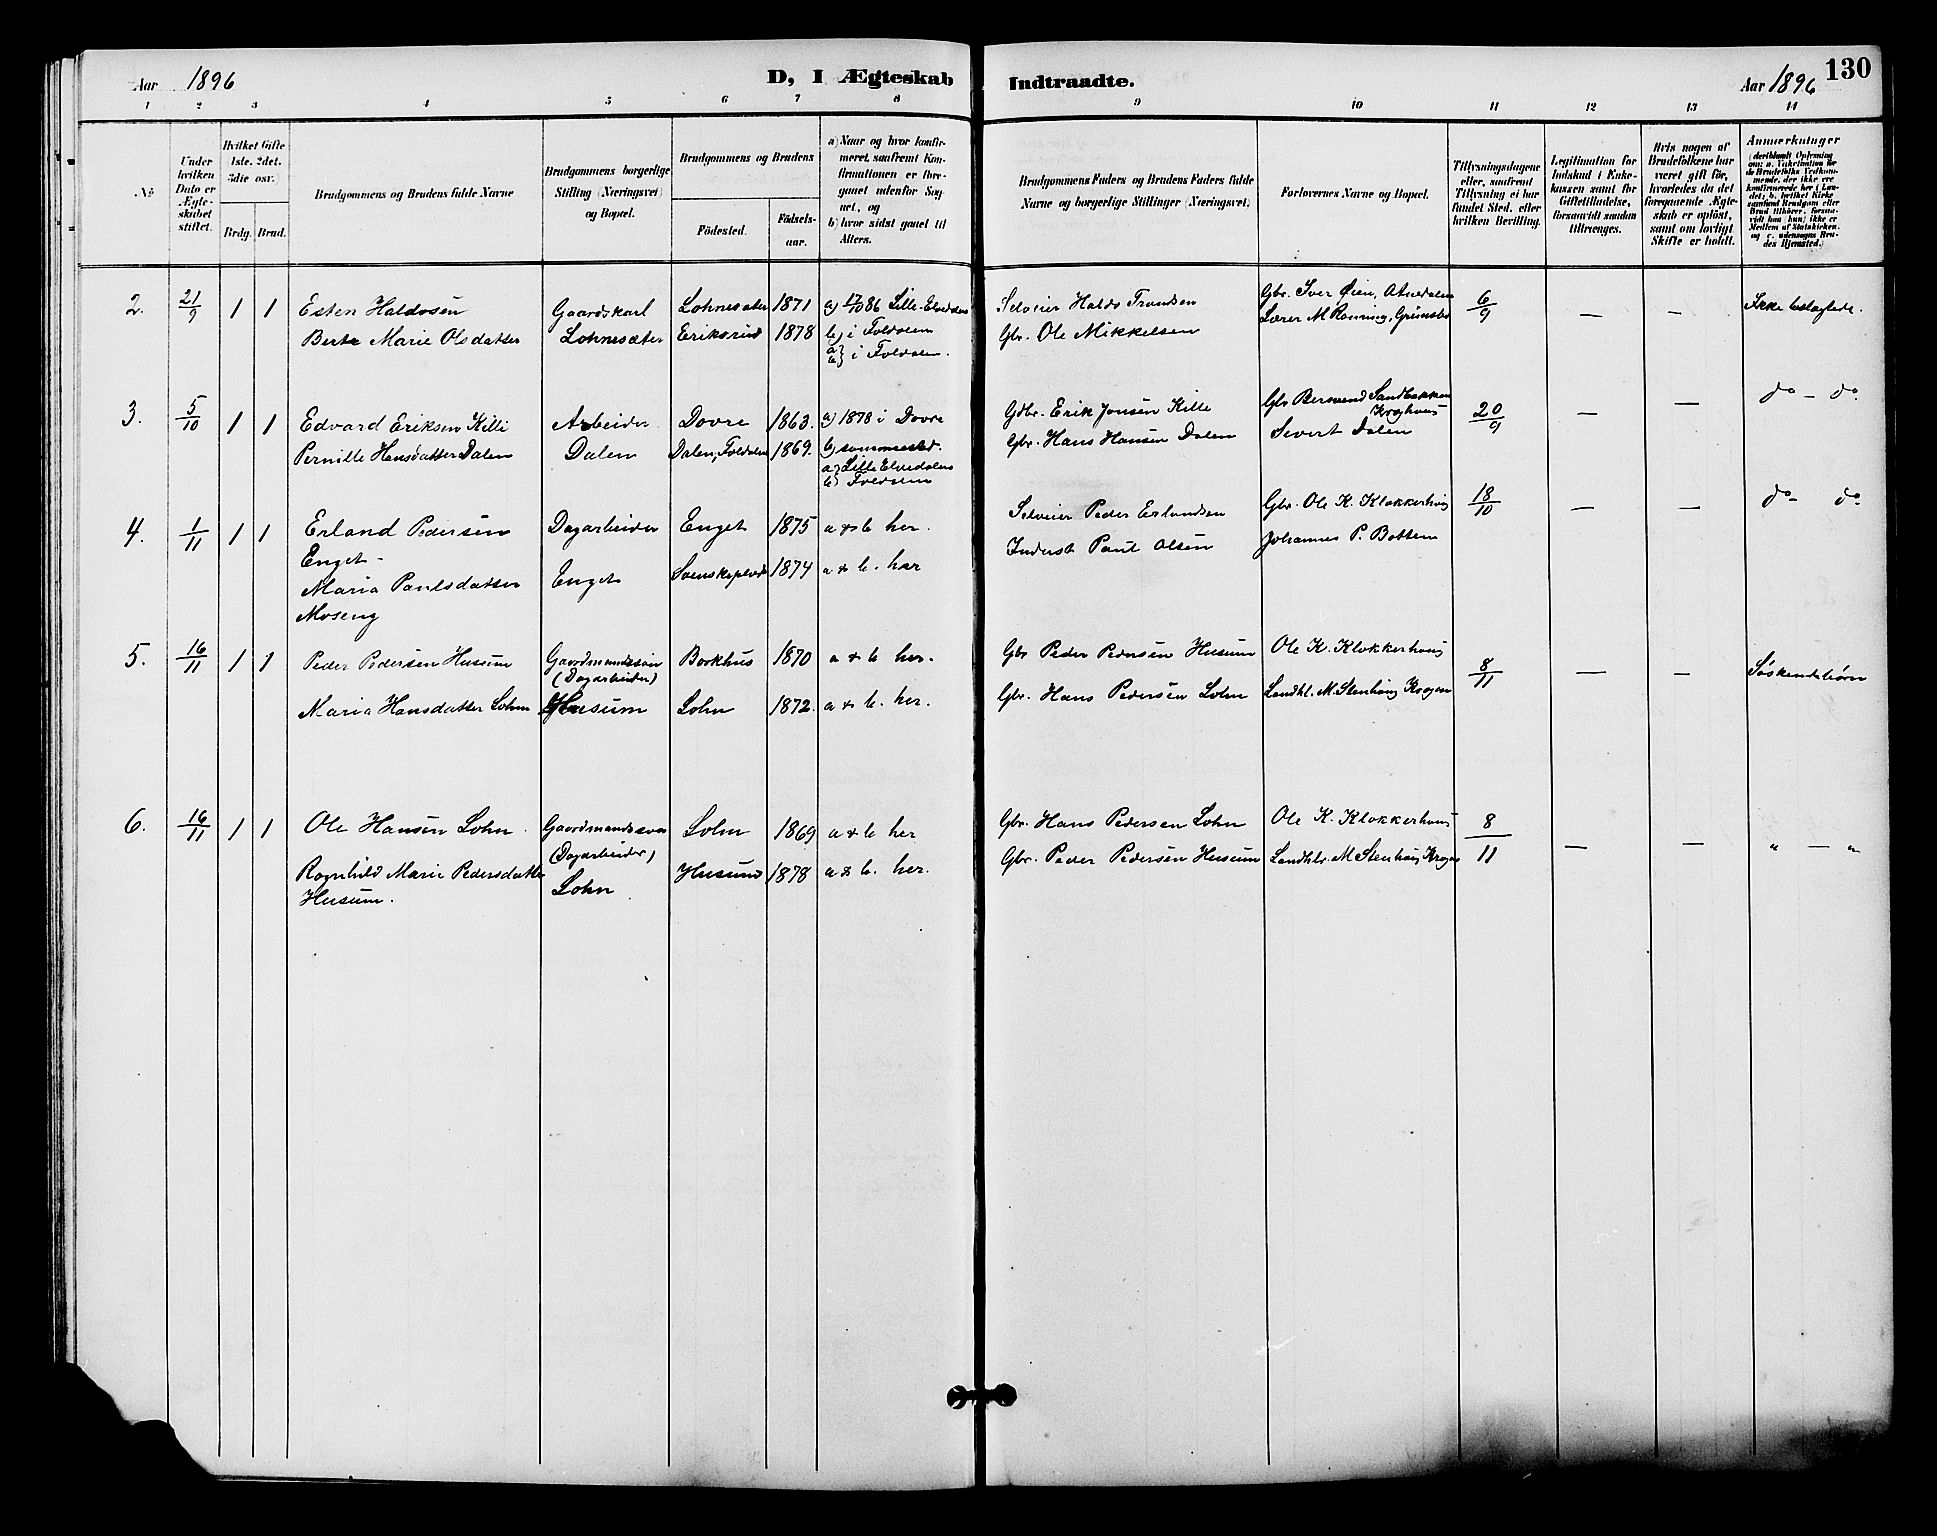 Aar 1896 D, I Ægteskab Indtraadte. Aar 1896 130
1 2 3 4 5 6 7 8 9 10 11 12 13 14
No
Under hvilken Dato er Ægteskabet stiftet.
Hvilket Gifte 1ste. 2det. 3die osv.
Brdg. Brud.
Brudgommens og Brudens fulde Navne
Brudgommens borgerlige Stilling (Næringsvei) og Bopæl.
Brudgommens og Brudens
Födested. Födselsaar.
a) Naar og hvor konfirmeret, saafremt Konfirmationen er foregaaet udenfor Sognet, og
b) hvor sidst gaaet til Alters.
Brudgommens Faders og Brudens Faders fulde Navne og borgerlige Stillinger (Næringsvei)
Forlovernes Navne og Bopæl.
Tillysningsdagene eller, saafremt Tillysning ei har fundet Sted, efter hvilken Bevilling.
Legitimation for Indskud i Enkekassen samt for Giftetilladelse, forsaavidt saadan tiltrænges.
Hvis nogen af Brudefolkene har været gift för, hvorledes da det foregaaende Ægteskab er oplöst, samt om lovligt Skifte er holdt.
Anmærkninger
2. 21/9 1 1 Esten Haldosen Gaardskarl Lohnesæter 1871 a) 17/10 86 Lille-Elvedalen
Berte Marie Olsdatter Lohnesæter Eriksrud 1878 b) i Foldalen
a) b) i Foldalen.
Selveier Haldo Trondsen Gbr. Iver Øien, Atnedalen 6/9 — — Ikke beslægtede.
Gbr. Ole Mikkelsen Lærer M Rönning, Grimsbu
3. 5/10 1 1 Edvard Eriksen Killi Arbeider Dovre 1863. a) 1878 i Dovre
Pernille Hansdatter Dalen Dalen Dalen, Foldalen 1869. b) sammested.
a) Lille Elvedalen
b) Foldalen
Gdbr. Erik Jonsen Kille Gbr Bersvend Sandbakken 20/9 — — do — do
Kroghaug
Gbr. Hans Hansen Dalen Sivert Dalen
4. 1/11 1 1 Erland Pedersen Dagarbeider Enget 1875 a & b her.
Enget
Maria Paulsdatter Enget Svenskeplads 1874 a & b. her
Moseng
Selveier Peder Erlandsen Gbr. Ole K. Klokkerhaug 18/10 — — do do
Inderst Paul Olsen Johannes P. Botten
5. 16/11 1 1 Peder Pedersen Husum Gaardmandssön Borkhus 1870 a & b her.
(Dagarbeider)
Maria Hansdatter Lohn Husum Lohn 1872. a & b. her.
Gbr Peder Pedersen Husum Ole K. Klokkerhaug 8/11 — — Söskendebörn
Gbr. Hans Pedersen Lohn Landhl. M. Stenhaug Krogen
6. 16/11 1 1 Ole Hansen Lohn Gaardmandssön Lohn 1869 a & b her
(Dagarbeider)
Ragnhild Marie Pedersdatter Lohn Husum 1878 a & b. her.
Husum.
Gbr. Hans Pedersen Lohn Ole K. Klokkerhaug 8/11 — — " — "
Gbr. Peder Pedersen Husum Landhl. M Stenhaug Krogen